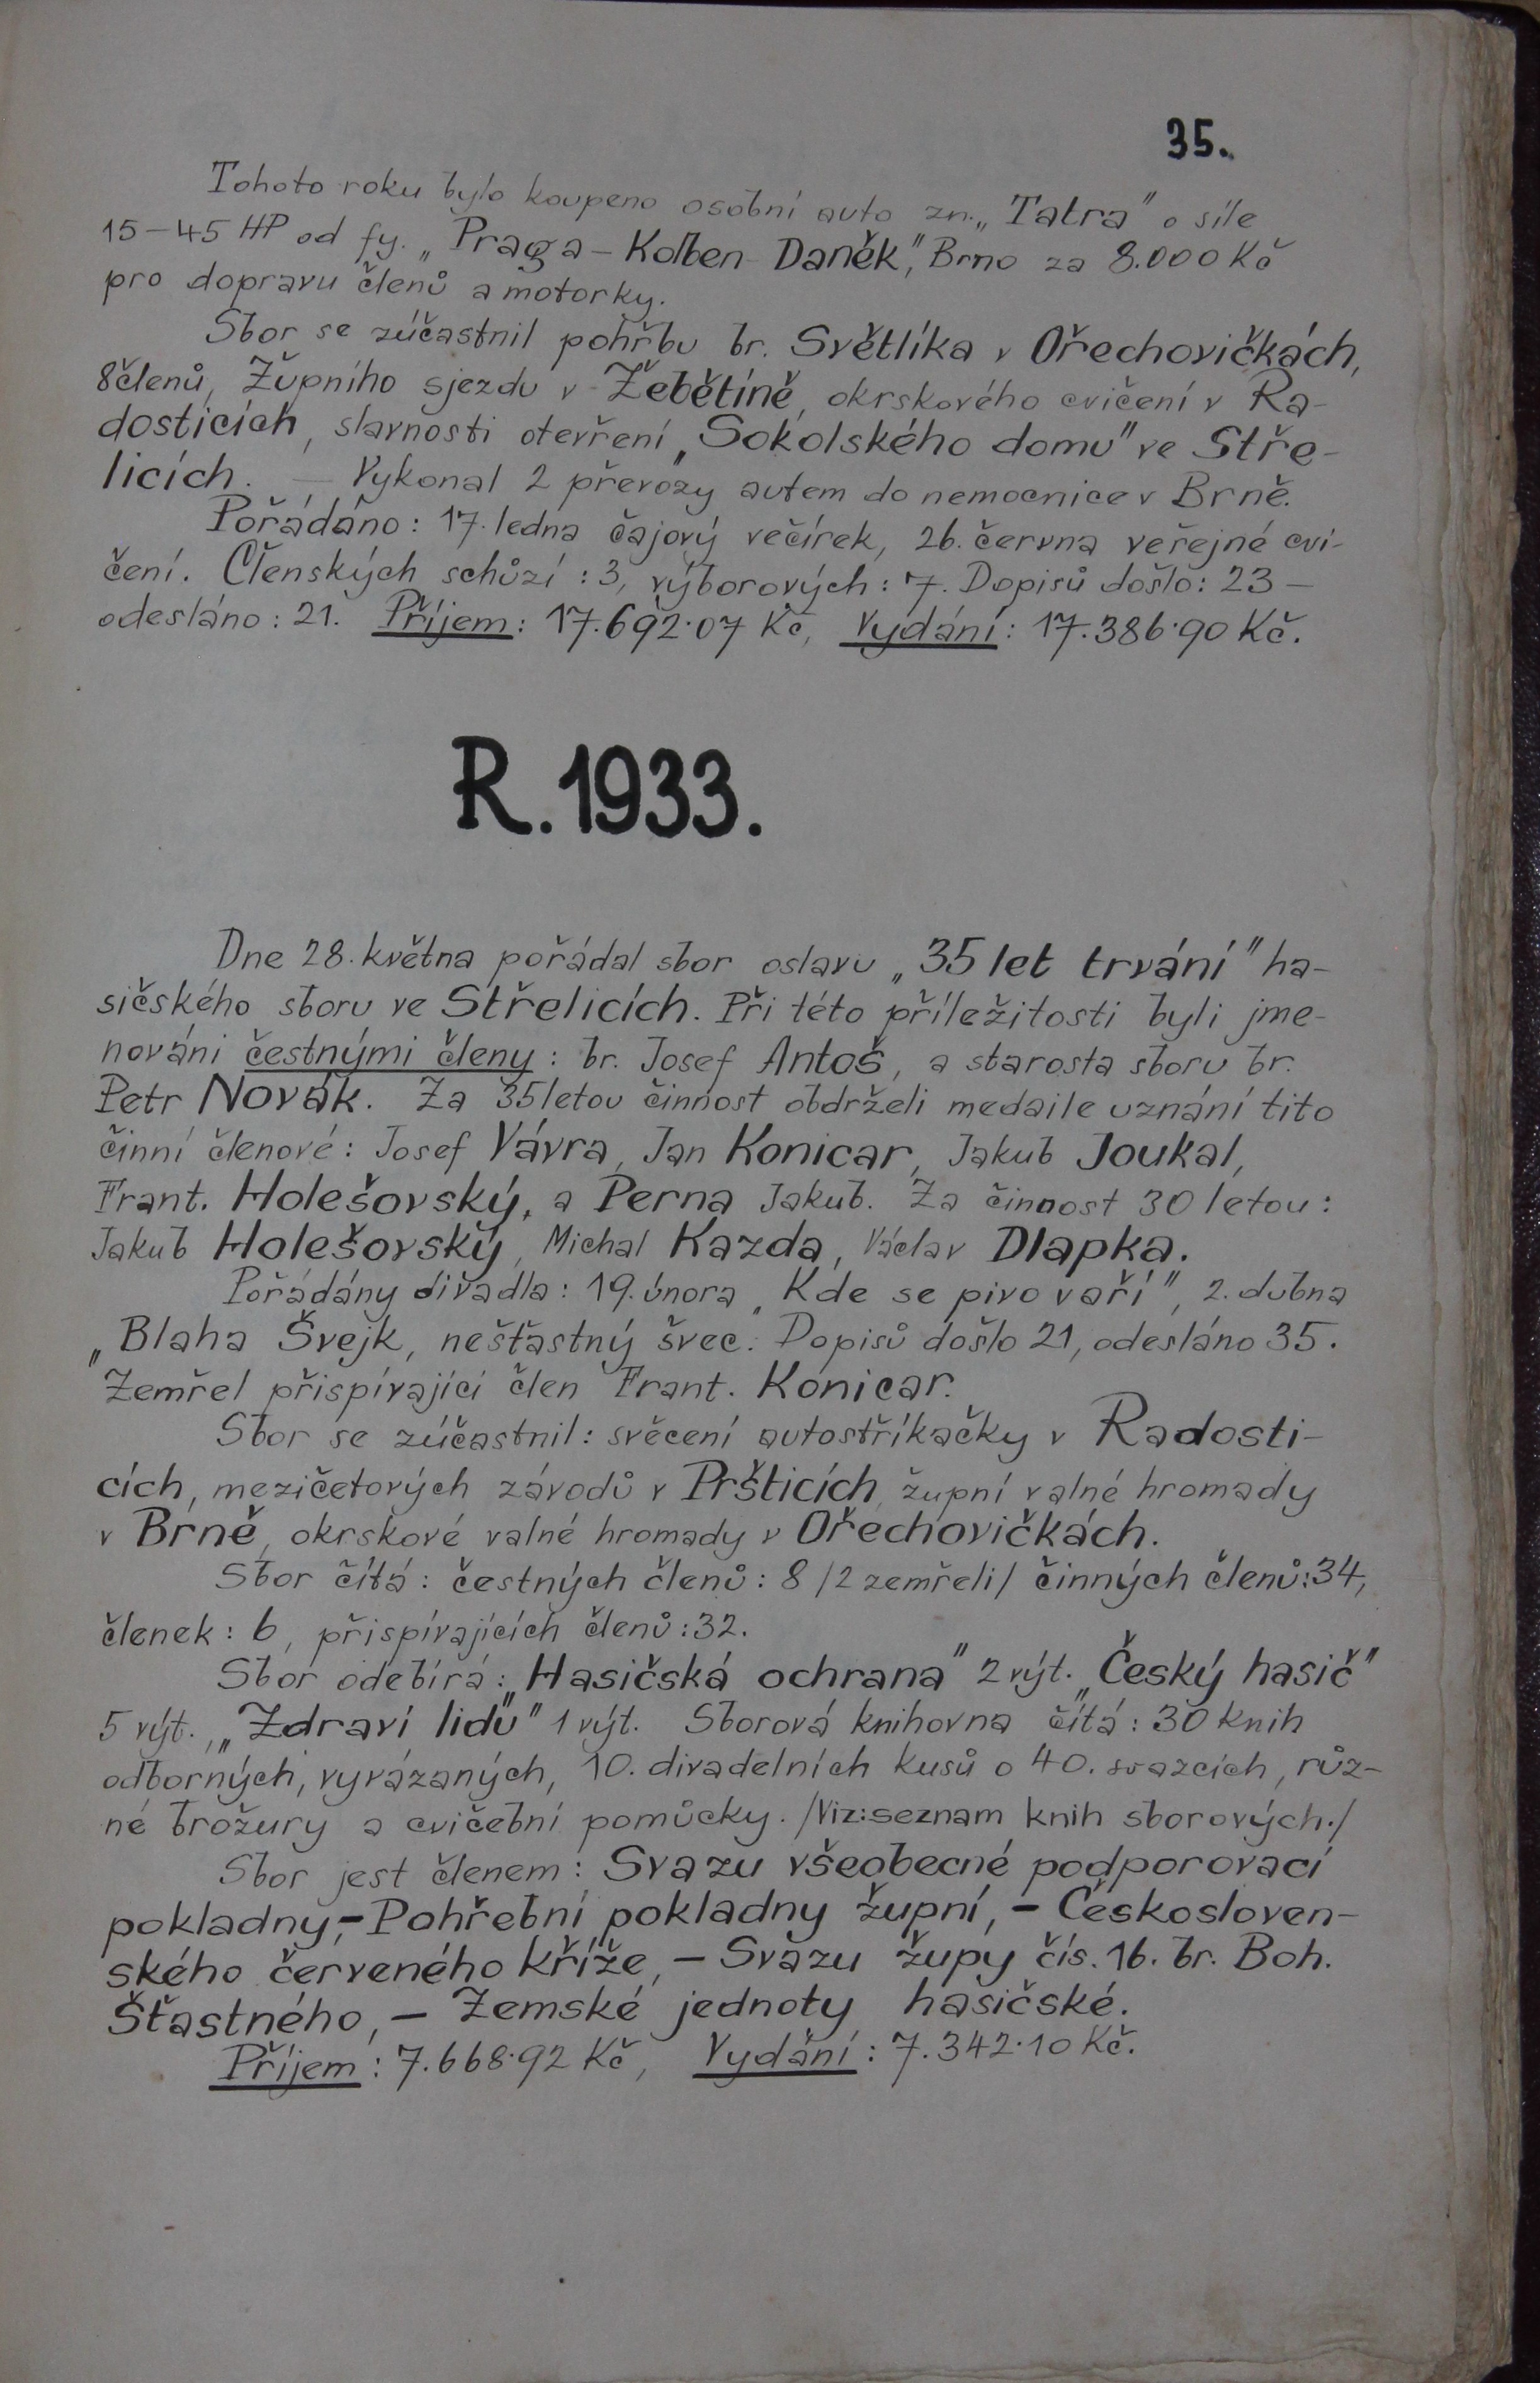 35.
Tohoto roku bylo koupeno osobní auto zn. „Tatra" o síle
15-45 HP od fy. „Praga - Kolben Daněk", Brno za 8.000 Kč
pro dopravu členů a motorky.
Sbor se zúčastnil pohřbu br. Světlíka v Ořechovičkách,
8členů, Župního sjezdu v Žebětíně, okrskového cvičení v Ra-
dosticích, slavnosti otevření „Sokolského domu" ve Stře-
licích. — Vykonal 2 převozy autem do nemocnice v Brně.
Pořádáno: 17. ledna čajový večírek, 26. června veřejné cvi-
čení. Členských schůzí: 3, výborových: 7. Dopisů došlo: 23 —
odesláno: 21. Příjem: 17.692·07 Kč, Vydání: 17.386·90 Kč.
R. 1933.
Dne 28. května pořádal sbor oslavu „35 let trvání" ha-
sičského sboru ve Střelicích. Při této příležitosti byli jme-
nováni čestnými členy: br. Josef Antoš, a starosta sboru br.
Petr Novák. Za 35letou činnost obdrželi medaile uznání tito
činní členové: Josef Vávra, Jan Konicar, Jakub Joukal,
Frant. Holešovský, a Perna Jakub. Za činnost 30 letou:
Jakub Holešovský, Michal Kazda, Václav Dlapka.
Pořádány divadla: 19. února „Kde se pivo vaří", 2. dubna
„Blaha Švejk, nešťastný švec. Dopisů došlo 21, odesláno 35.
Zemřel přispívající člen Frant. Konicar.
Sbor se zúčastnil: svěcení autostříkačky v Radosti-
cích, mezičetových závodů v Pršticích, župní valné hromady
v Brně, okrskové valné hromady v Ořechovičkách.
Sbor čítá: čestných členů: 8 /2 zemřeli/ činných členů: 34,
členek: 6, přispívajících členů: 32.
Sbor odebírá: „Hasičská ochrana" 2 výt. „Český hasič"
5 výt., „Zdraví lidu" 1 výt. Sborová knihovna čítá: 30 knih
odborných, vyvázaných, 10. divadelních kusů o 40. svazcích, růz-
né brožury a cvičební pomůcky. /Viz: seznam knih sborových./
Sbor jest členem: Svazu všeobecné podporovací
pokladny, - Pohřební pokladny župní, - Českosloven-
ského červeného kříže, - Svazu župy čís. 16. br. Boh.
Šťastného, - Zemské jednoty hasičské.
Příjem: 7.668·92 Kč, Vydání: 7.342·10 Kč.